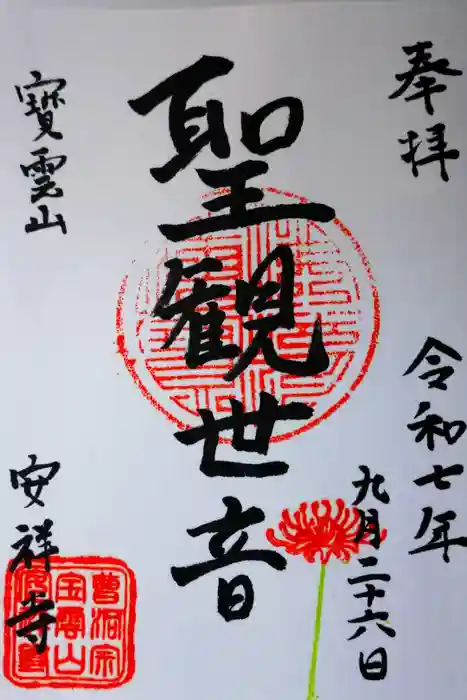 奉拝
令和七年
九月二十六日
聖観世音
寳雲山
安祥寺
曹洞宗
宝雲山